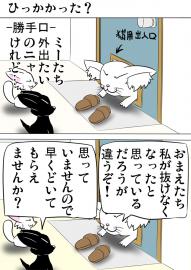 ひっかかった？
-勝手口-
ミーたち
外出たい
のニャ
けれど…
猫用出入口
おまえたち
私が抜けなく
なったと
思っている
だろうが
違うぞ！
思って
いませんので
早くどいて
もらえ
ませんか？